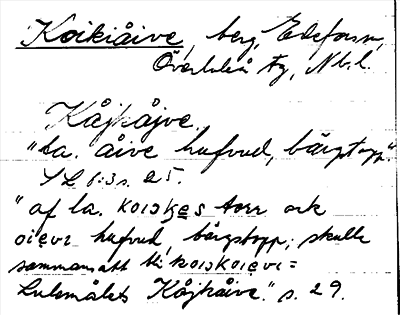 Koikiåive, berg, Edefors sn,
Överluleå tg, Nb. l.
Kåjkåjve.
"La. åive hufvud, bärgtopp".
SL 6:3 s. 25.
"af la. koiɔkes torr och
oievi hufvud, bärgstopp; skulle
sammansatt bli koiɔkoievi =
Lulemålets Kåjkåive." s. 29.